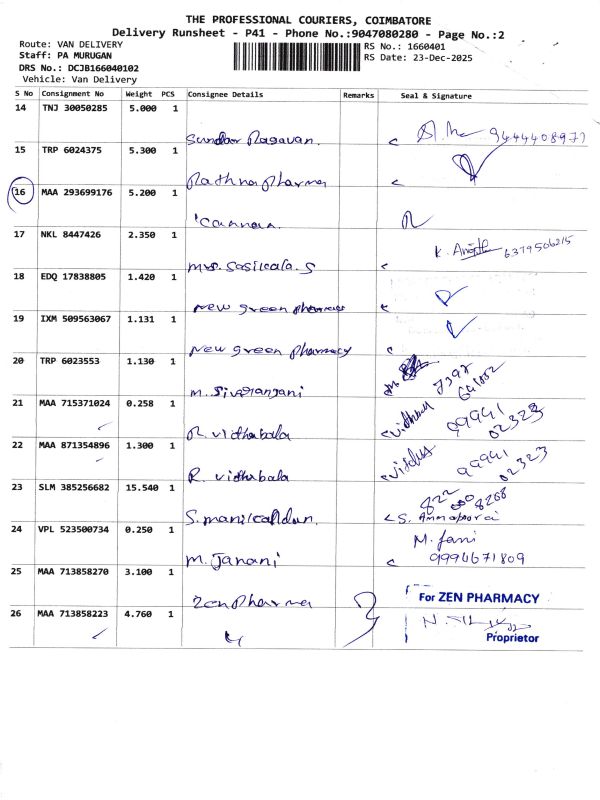 THE PROFESSIONAL COURIERS, COIMBATORE
Delivery Runsheet - P41 - Phone No.:9047080280 - Page No.:2
Route: VAN DELIVERY
Staff: PA MURUGAN
DRS No.: DCJB166040102
Vehicle: Van Delivery
RS No.: 1660401
RS Date: 23-Dec-2025
S No Consignment No Weight PCS Consignee Details Remarks Seal & Signature
14 TNJ 30050285 5.000 1
Sundar Ragavan. 9444408977
15 TRP 6024375 5.300 1
Rathna pharma
16 MAA 293699176 5.200 1
Cannan.
17 NKL 8447426 2.350 1
Mrs. Sasikala. S K. 6379506215
18 EDQ 17838805 1.420 1
New green pharmacy
19 IXM 509563067 1.131 1
New green pharmacy
20 TRP 6023553 1.130 1
M. Sivarangani 7397
21 MAA 715371024 0.258 1
R. vidhabala 99941
02323
22 MAA 871354896 1.300 1
R. vidhabala 99941
02323
23 SLM 385256682 15.540 1
822 8268
S. manikandan. S. Annapoorai
24 VPL 523500734 0.250 1
M. Jani
M. Janani 9994671809
25 MAA 713858270 3.100 1
Zen pharma For ZEN PHARMACY
26 MAA 713858223 4.760 1
Proprietor